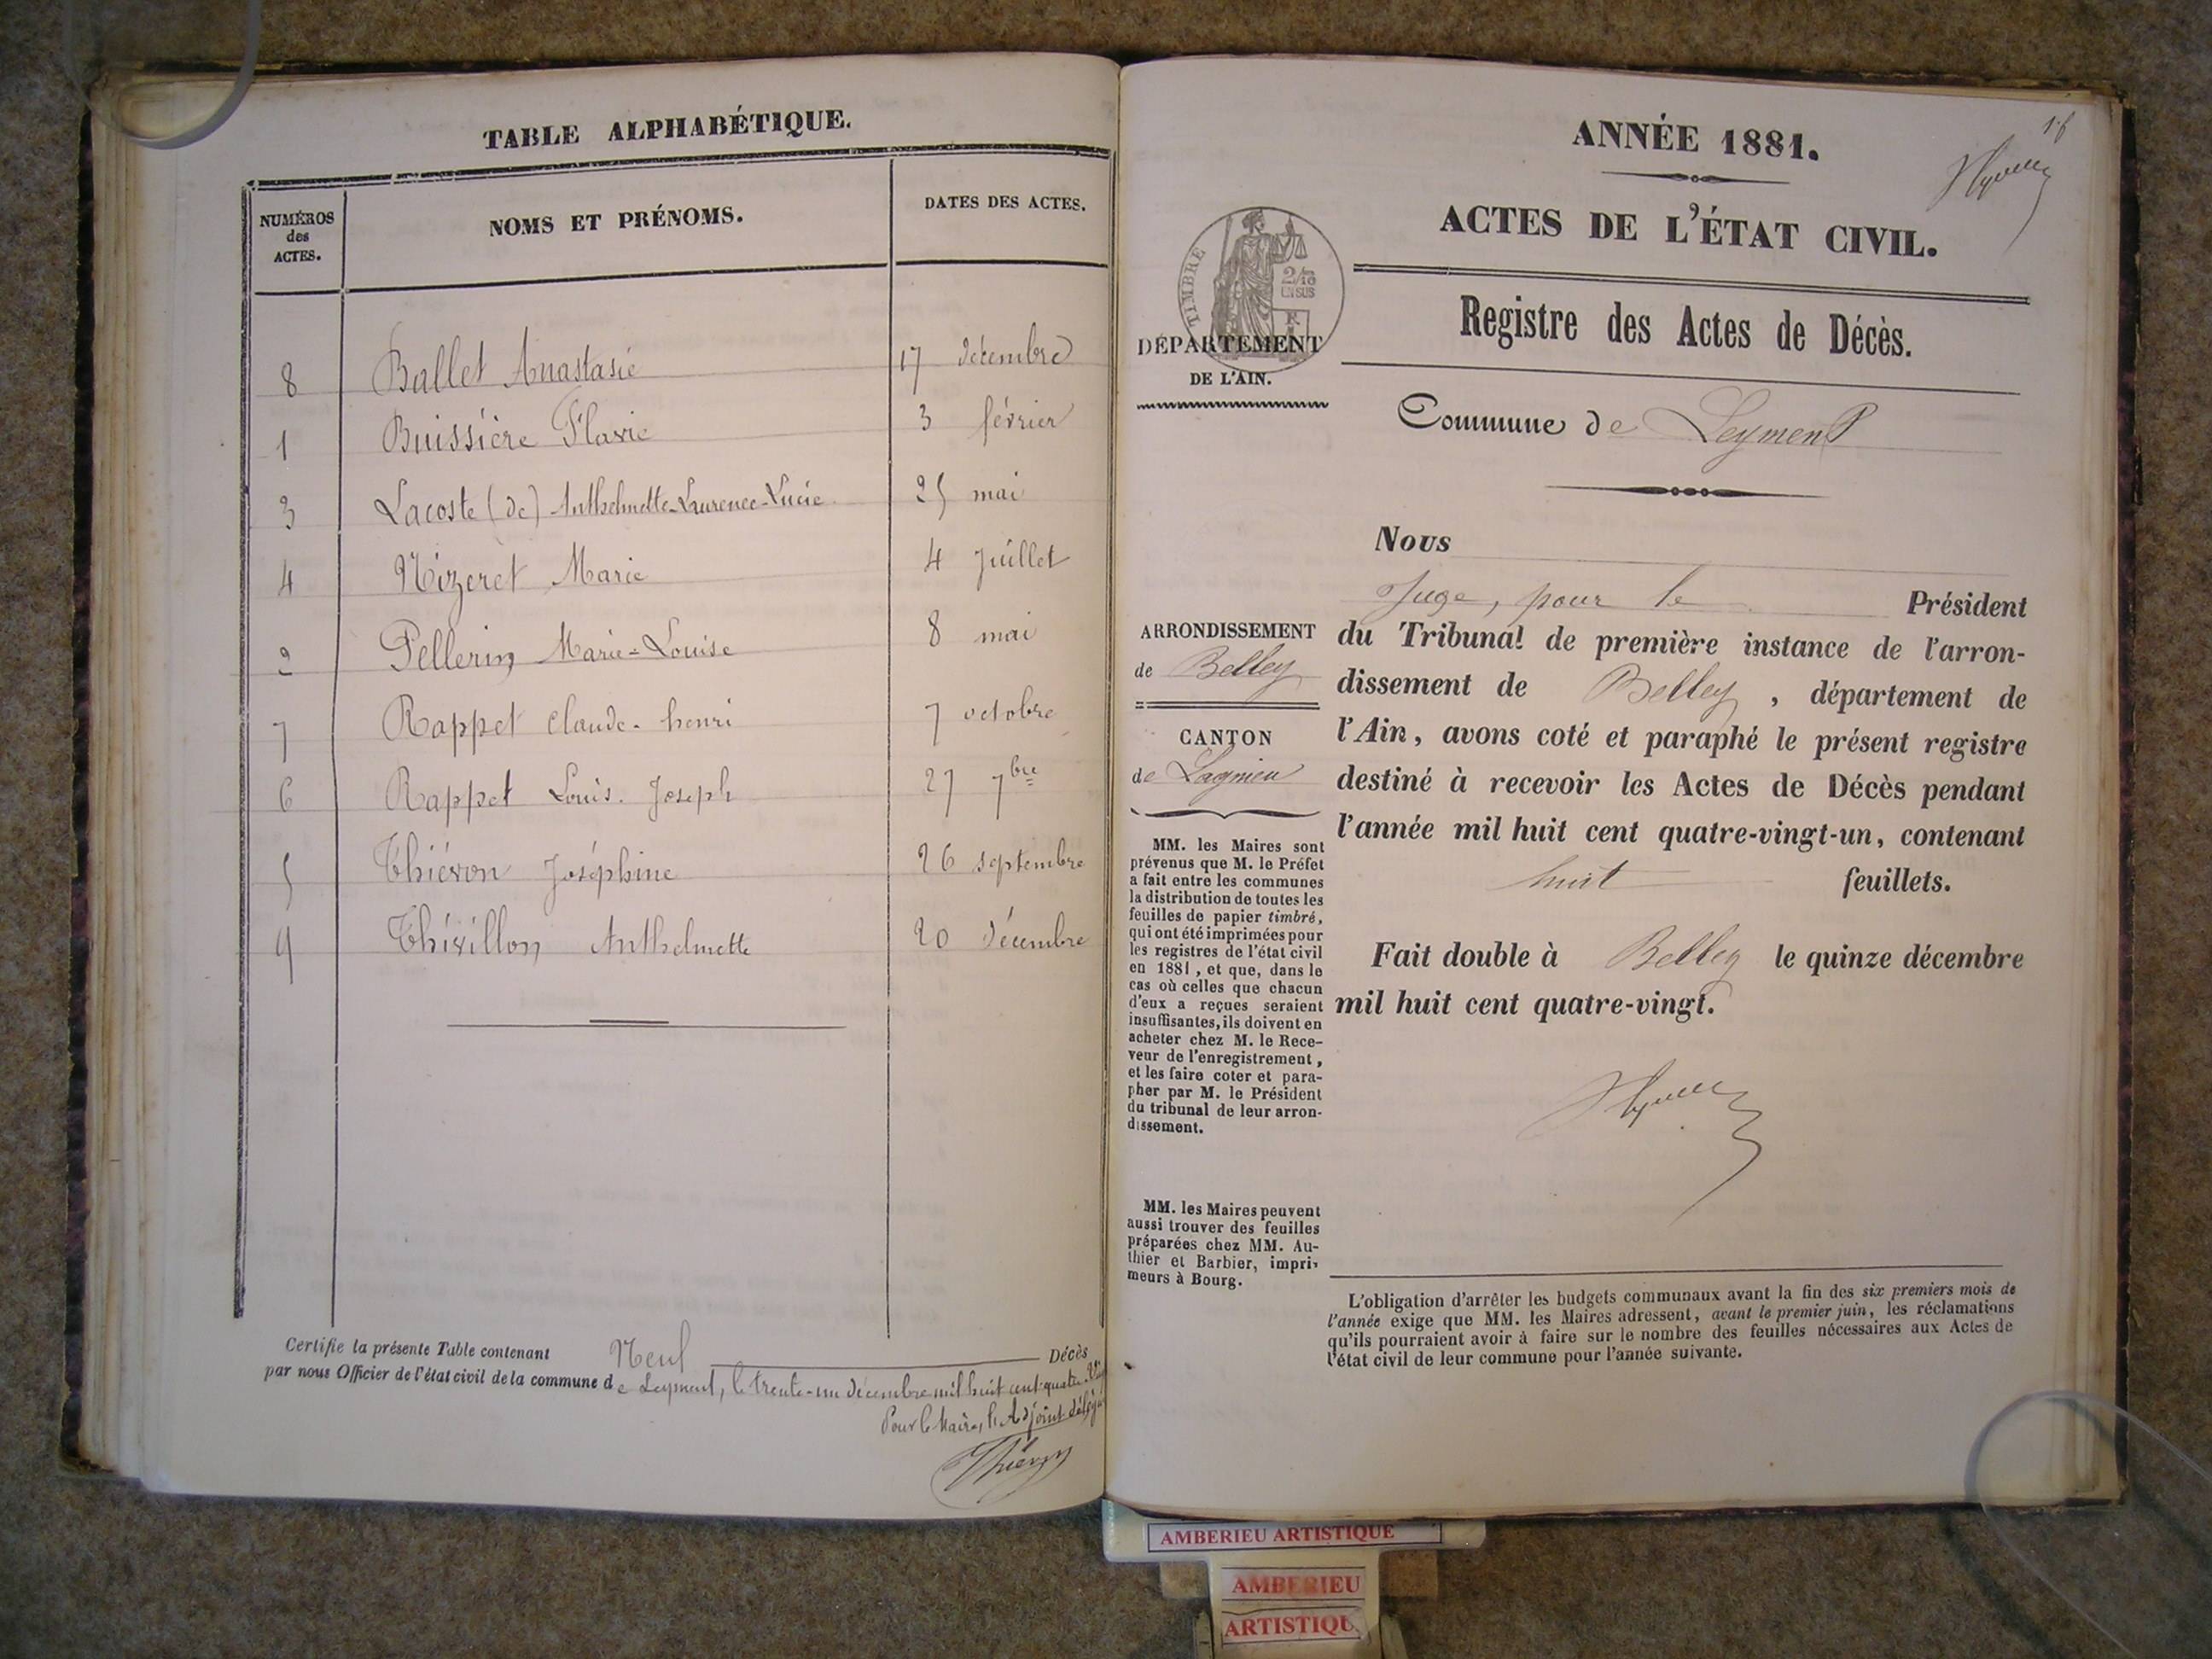 TABLE ALPHABÉTIQUE.
NUMÉROS
des
ACTES.
NOMS ET PRÉNOMS.
DATES DES ACTES.
8 Ballet Anastasie 17 décembre
1 Buissière Flavie 3 février
3 Lacoste (de) Anthelmette-Laurence-Lucie 25 mai
4 Nizeret Marie 4 Juillet
2 Pellerin Marie=Louise 8 mai
7 Rappet Claude-henri 7 octobre
6 Rappet Louis-Joseph 27 7bre
5 Thiévon Joséphine 26 septembre
9 Thivillon Anthelmette 20 décembre
Certifie la présente Table contenant Neuf Décès
par nous Officier de l'état civil de la commune de Leyment, le trente-un décembre mil huit cent quatre
Pour le Maire, l'Adjoint délégué
Thiévon
ANNÉE 1881.
ACTES DE L'ÉTAT CIVIL.
TIMBRE
2/10
EN SUS
DÉPARTEMENT
DE L'AIN.
Registre des Actes de Décès.
Commune de Leyment
Nous
Juge, pour le Président
du Tribunal de première instance de l'arron-
dissement de Belley, département de
l'Ain, avons coté et paraphé le présent registre
destiné à recevoir les Actes de Décès pendant
l'année mil huit cent quatre-vingt-un, contenant
huit feuillets.
Fait double à Belley le quinze décembre
mil huit cent quatre-vingt.
ARRONDISSEMENT
de Belley
CANTON
de Lagnieu
MM. les Maires sont
prévenus que M. le Préfet
a fait entre les communes
la distribution de toutes les
feuilles de papier timbré,
qui ont été imprimées pour
les registres de l'état civil
en 1881, et que, dans le
cas où celles que chacun
d'eux a reçues seraient
insuffisantes, ils doivent en
acheter chez M. le Rece-
veur de l'enregistrement,
et les faire coter et para-
pher par M. le Président
du tribunal de leur arron-
dissement.
MM. les Maires peuvent
aussi trouver des feuilles
préparées chez MM. Au-
thier et Barbier, impri-
meurs à Bourg.
L'obligation d'arrêter les budgets communaux avant la fin des six premiers mois de
l'année exige que MM. les Maires adressent, avant le premier juin, les réclamations
qu'ils pourraient avoir à faire sur le nombre des feuilles nécessaires aux Actes de
l'état civil de leur commune pour l'année suivante.
AMBERIEU ARTISTIQUE
AMBERIEU
ARTISTIQU